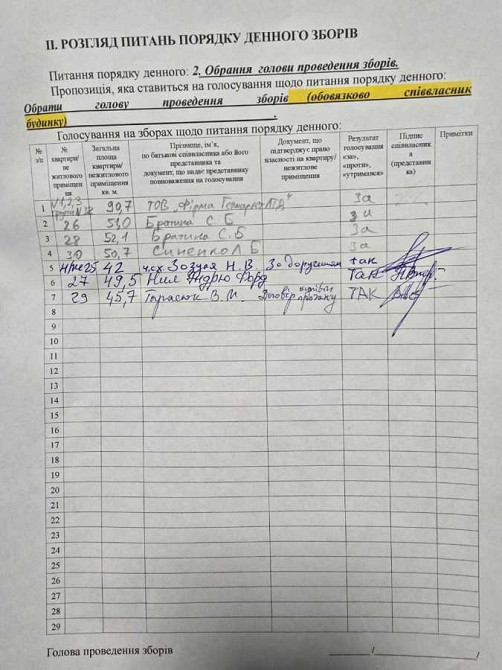 ІІ. РОЗГЛЯД ПИТАНЬ ПОРЯДКУ ДЕННОГО ЗБОРІВ
Питання порядку денного: 2. Обрання голови проведення зборів.
Пропозиція, яка ставиться на голосування щодо питання порядку денного:
Обрати голову проведення зборів (обовязково співвласник
будинку)
Голосування на зборах щодо питання порядку денного:
№ з/п № квартири/ не житлового приміщення Загальна площа квартири/ нежитлового приміщення кв. м. Прізвище, ім'я, по батькові співвласника або його представника та документ, що надає представнику повноваження на голосування Документ, що підтверджує право власності на квартиру/ нежитлове приміщення Результат голосування «за», «проти», «утримався» Підпис співвласника (представника) Примітки
1 №1,2,3 99,7 ТОВ „Фірма ЛТД" За
2 26 51,0 Братина С. Б
3 28 52,1 Братина С. Б За
4 30 50,7 Синенко Л Б За
5 42 Н. В За дорученням так
6 27 49,5 Так
7 29 45,7 Тарасюк В. М. Договір купівлі продажу ТАК
8
9
10
11
12
13
14
15
16
17
18
19
20
21
22
23
24
25
26
27
28
29
Голова проведення зборів / /